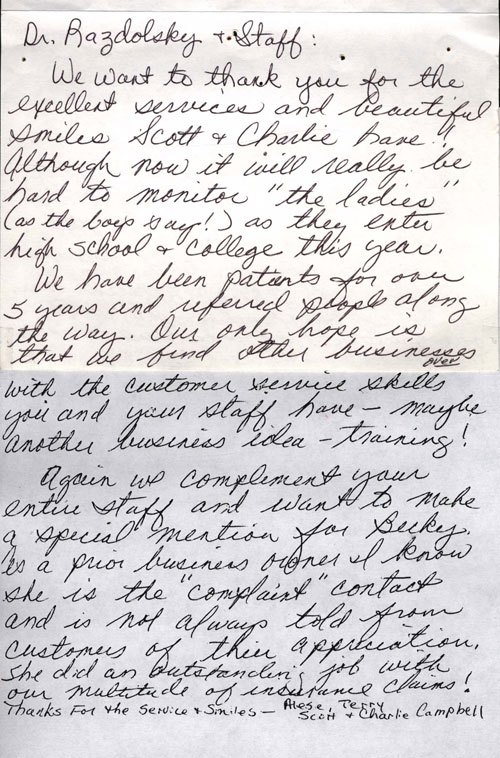 Dr. Razdolsky & Staff:
We want to thank you for the
excellent services and beautiful
smiles Scott & Charlie have!!
Although now it will really be
hard to monitor "the ladies"
(as the boys say!) as they enter
high school & college this year.
We have been patients for over
5 years and referred people along
the way. Our only hope is
that we find other businesses
over
with the customer service skills
you and your staff have - maybe
another business idea - training!
Again we complement your
entire staff and want to make
a special mention for Becky.
As a prior business owner I know
she is the "complaint" contact
and is not always told from
customers of thier appreciation.
She did an outstanding job with
our multitude of insurance claims!
Thanks For the Service & Smiles - Terry
Scott & Charlie Campbell